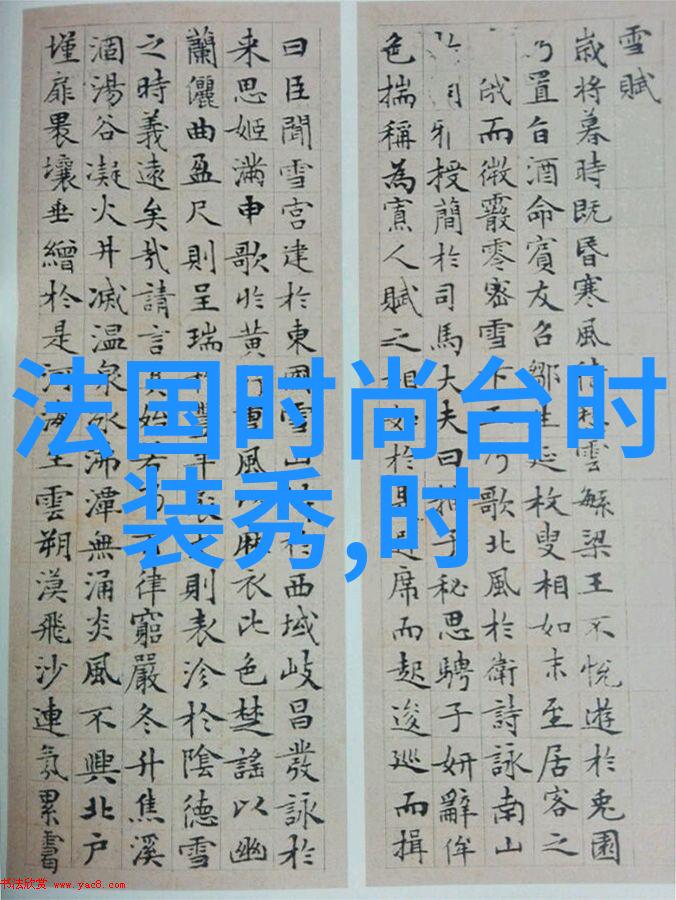 雪賦
歲將暮時既昏寒風雲緐梁王不悅遊於兔園
乃置旨酒命賓友召鄒生延枚叟相如末至居客之
俄而微霰零密雪下乃歌北風於衛詩詠南山
雅授簡於司馬大夫曰抽子秘思騁子妍辭侔
色揣稱為寡人賦之相如於是避席而起逡巡而揖
曰臣聞雪宮建於東國雪山於西域岐昌發詠於
来思姬滿申歌於黃竹曹風以麻衣比色楚謠以幽
蘭儷曲盈尺則呈瑞於豐年袤丈則表沴於陰德雪
之時義遠矣哉請言其始若乃律窮嚴冬升焦溪
涸湯谷凝火井滅温泉冰沸潭無涌炎風不興北户
墐扉裸壤垂繒於是河海生雲朔漠飛沙連氛累靄
法国时尚台时
装秀,时
书法欣赏 www.yac8.com